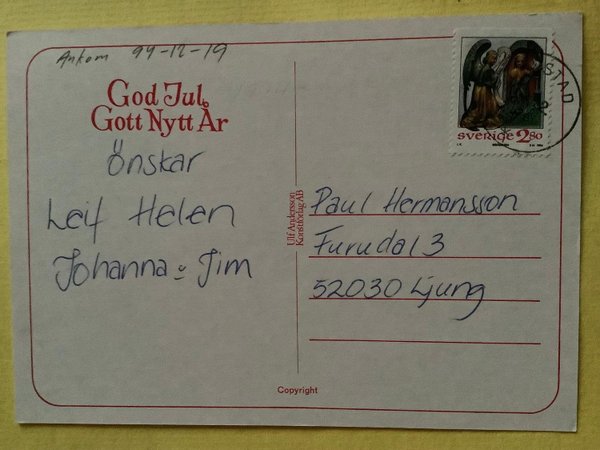 Ankom 94-12-19
God Jul
Gott Nytt År
Önskar
Leif Helen
Johanna o Jim
Ulf Andersson
Konstförlag AB
STAD
SVERIGE 2.80
Paul Hermansson
Furudal 3
52030 Ljung
Copyright